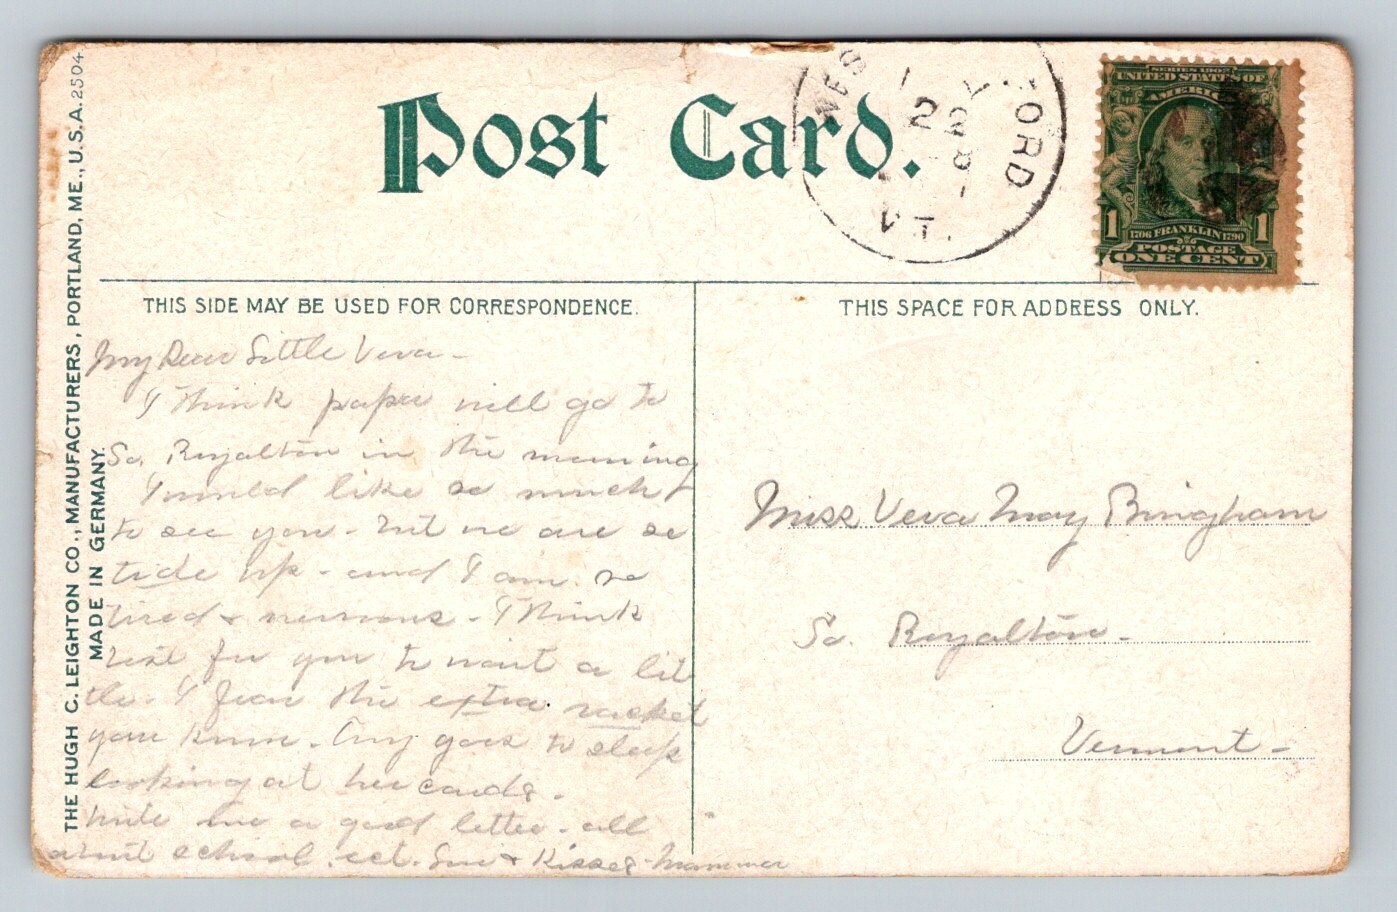 Post Card.
WES FORD
22
VT.
SERIES 1902
UNITED STATES OF
AMERICA
1706 FRANKLIN 1790
1 POSTAGE 1
ONE CENT
THE HUGH C. LEIGHTON CO., MANUFACTURERS, PORTLAND, ME., U.S.A. 2504
MADE IN GERMANY.
THIS SIDE MAY BE USED FOR CORRESPONDENCE.
THIS SPACE FOR ADDRESS ONLY.
My Dear Little Veva -
I think papa will go to
So. Royalton in the morning
I would like so much
to see you - but we are so
up - and I am so
tired & nervous - I think
best for you to wait a lit
tle. I fear the extra racket
you know. Amy goes to sleep
looking at her cards.
Write me a good letter - all
about school. ect. Love & Kisses - Mamma
Miss Veva May Bingham
So. Royalton -
Vermont -